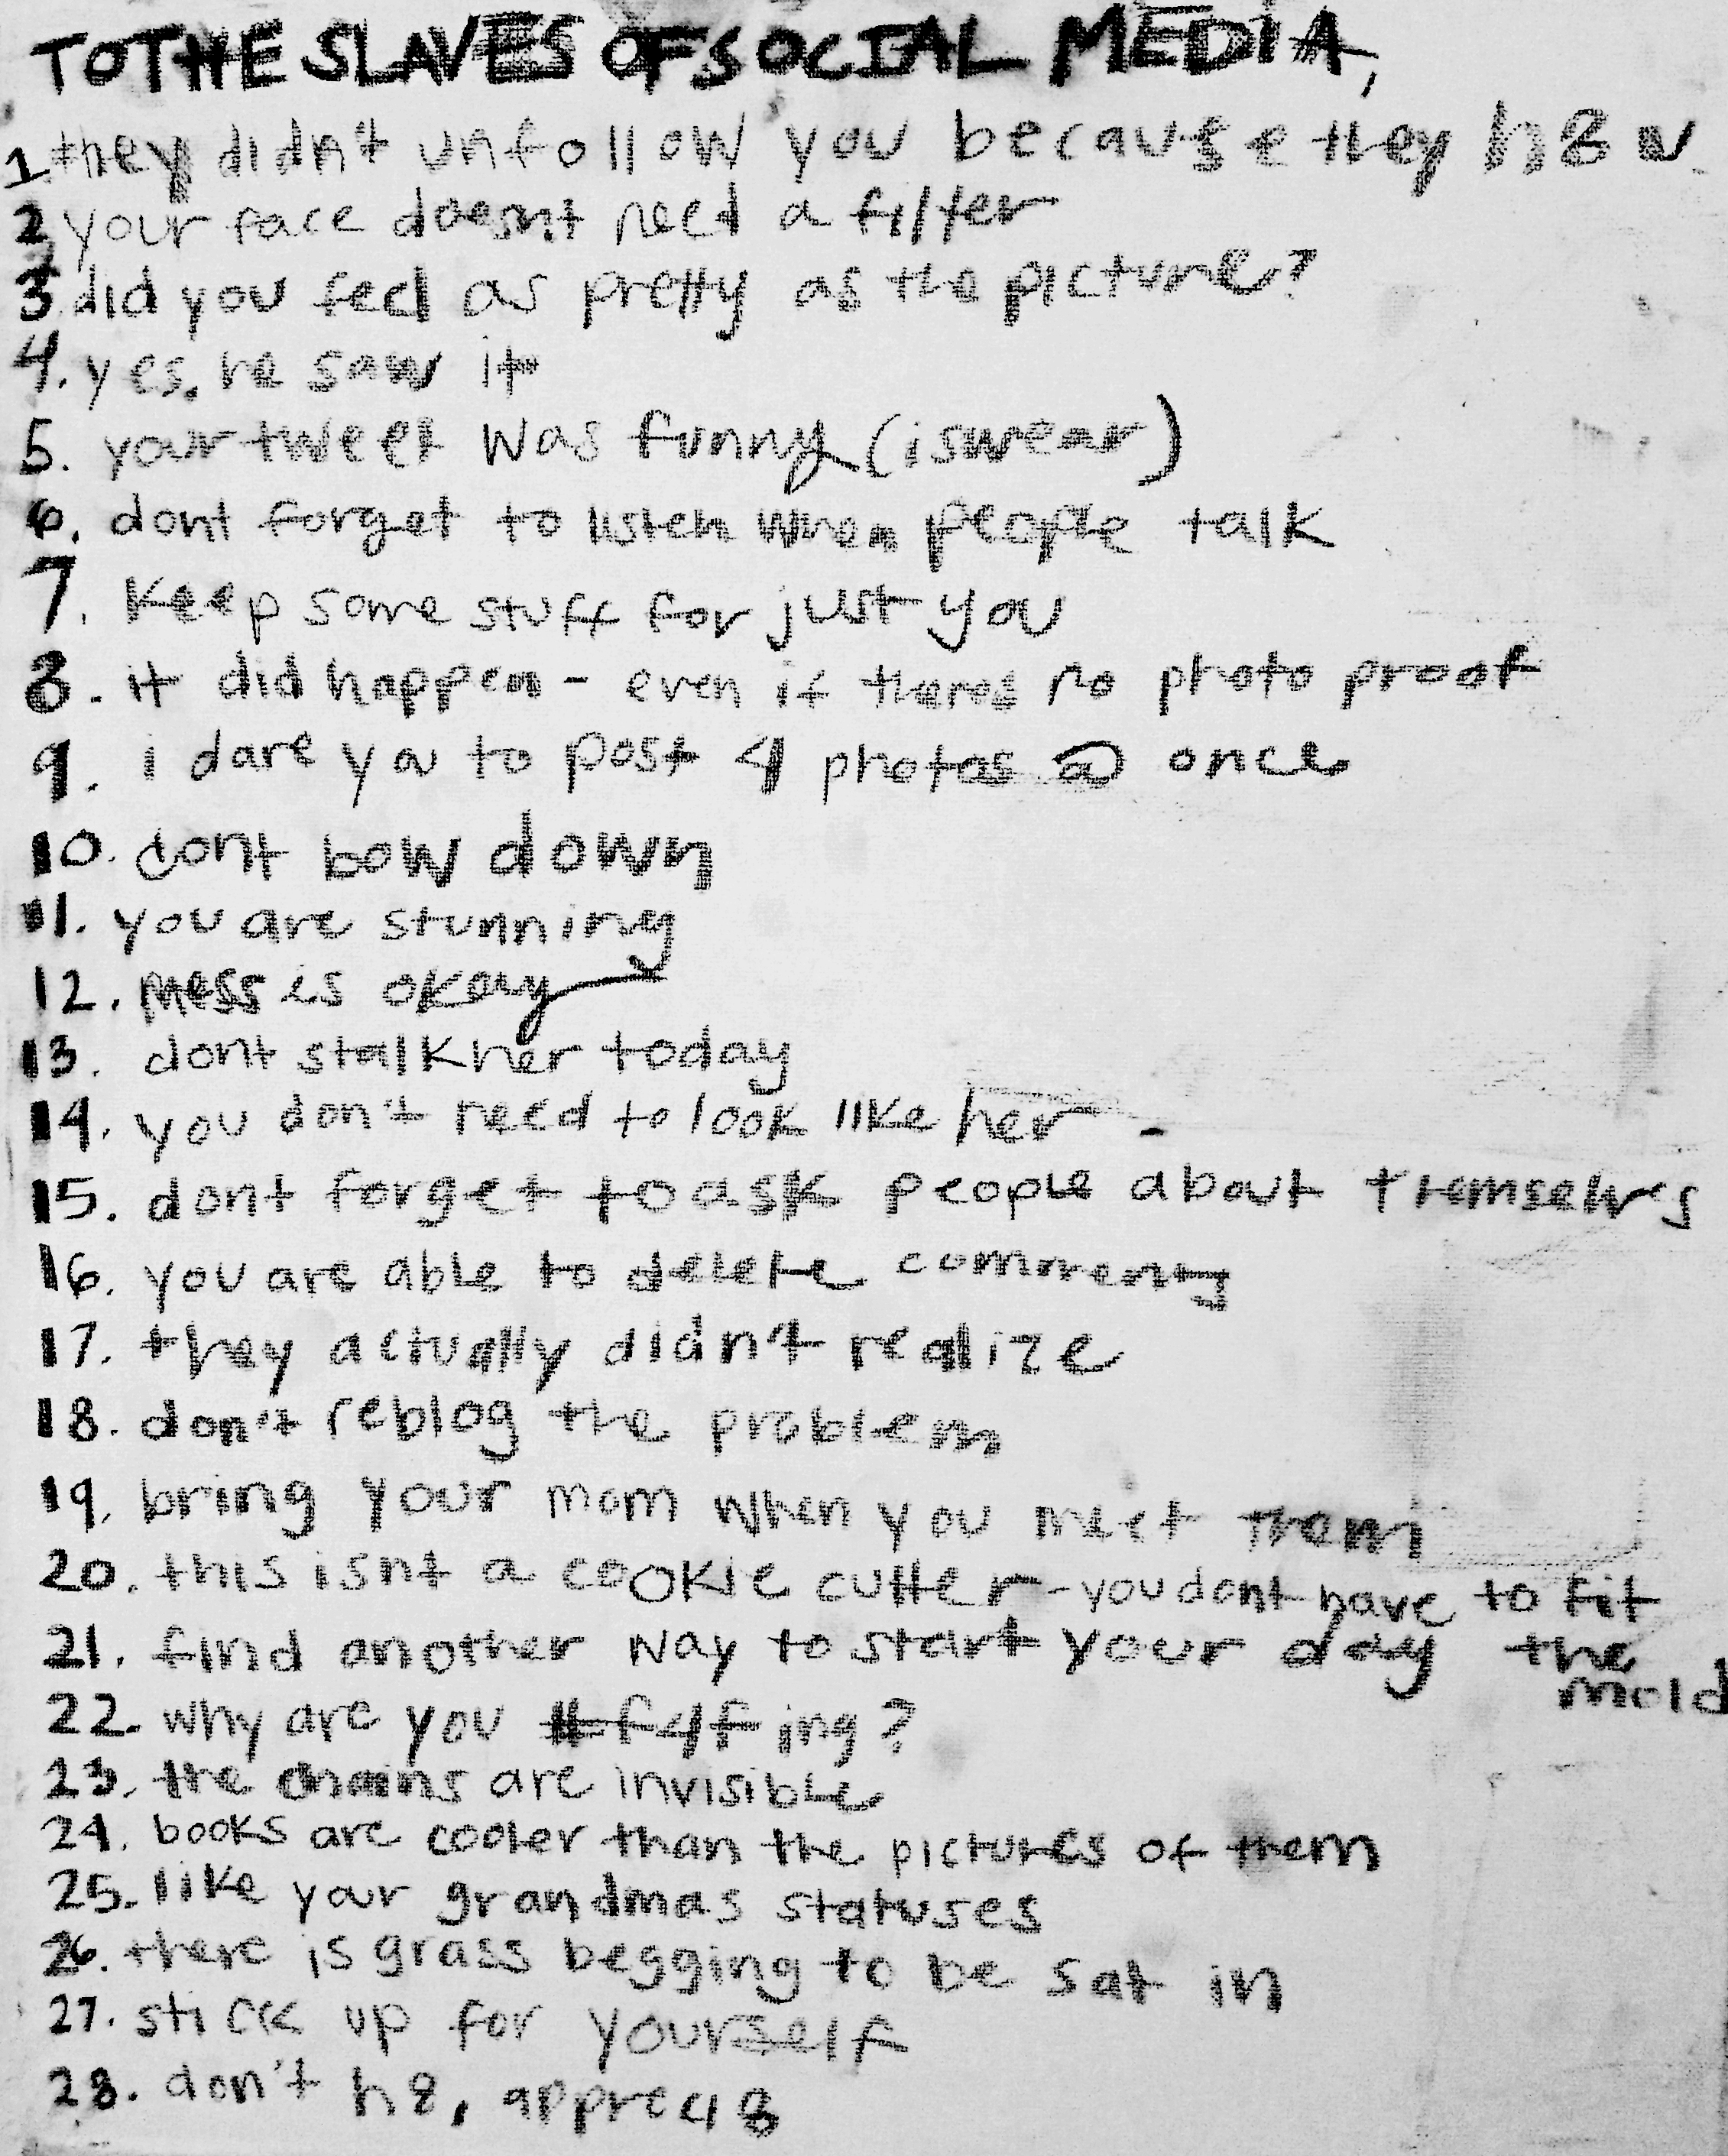 TO THE SLAVES OF SOCIAL MEDIA,
1. they didn't unfollow you because they h8 u
2. your face doesn't need a filter
3. did you feel as pretty as the picture?
4. yes, he saw it
5. your tweet was funny (i swear)
6. dont forget to listen when people talk
7. Keep some stuff for just you
8. it did happen - even if theres no photo proof
9. i dare ya to post 4 photos @ once
10. dont bow down
11. you are stunning
12. mess is okay
13. dont stalk her today
14. you don't need to look like her
15. dont forget to ask people about themselves
16. you are able to delete comments
17. they actually didn't realize
18. don't reblog the problem
19. bring your mom when you meet them
20. this isnt a cookie cutter - you dont have to fit
the
mold
21. find another way to start your day
22. why are you #f4f ing?
23. the chains are invisible
24. books are cooler than the pictures of them
25. like your grandmas statuses
26. there is grass begging to be sat in
27. stick up for yourself
28. don't h8, appreci8